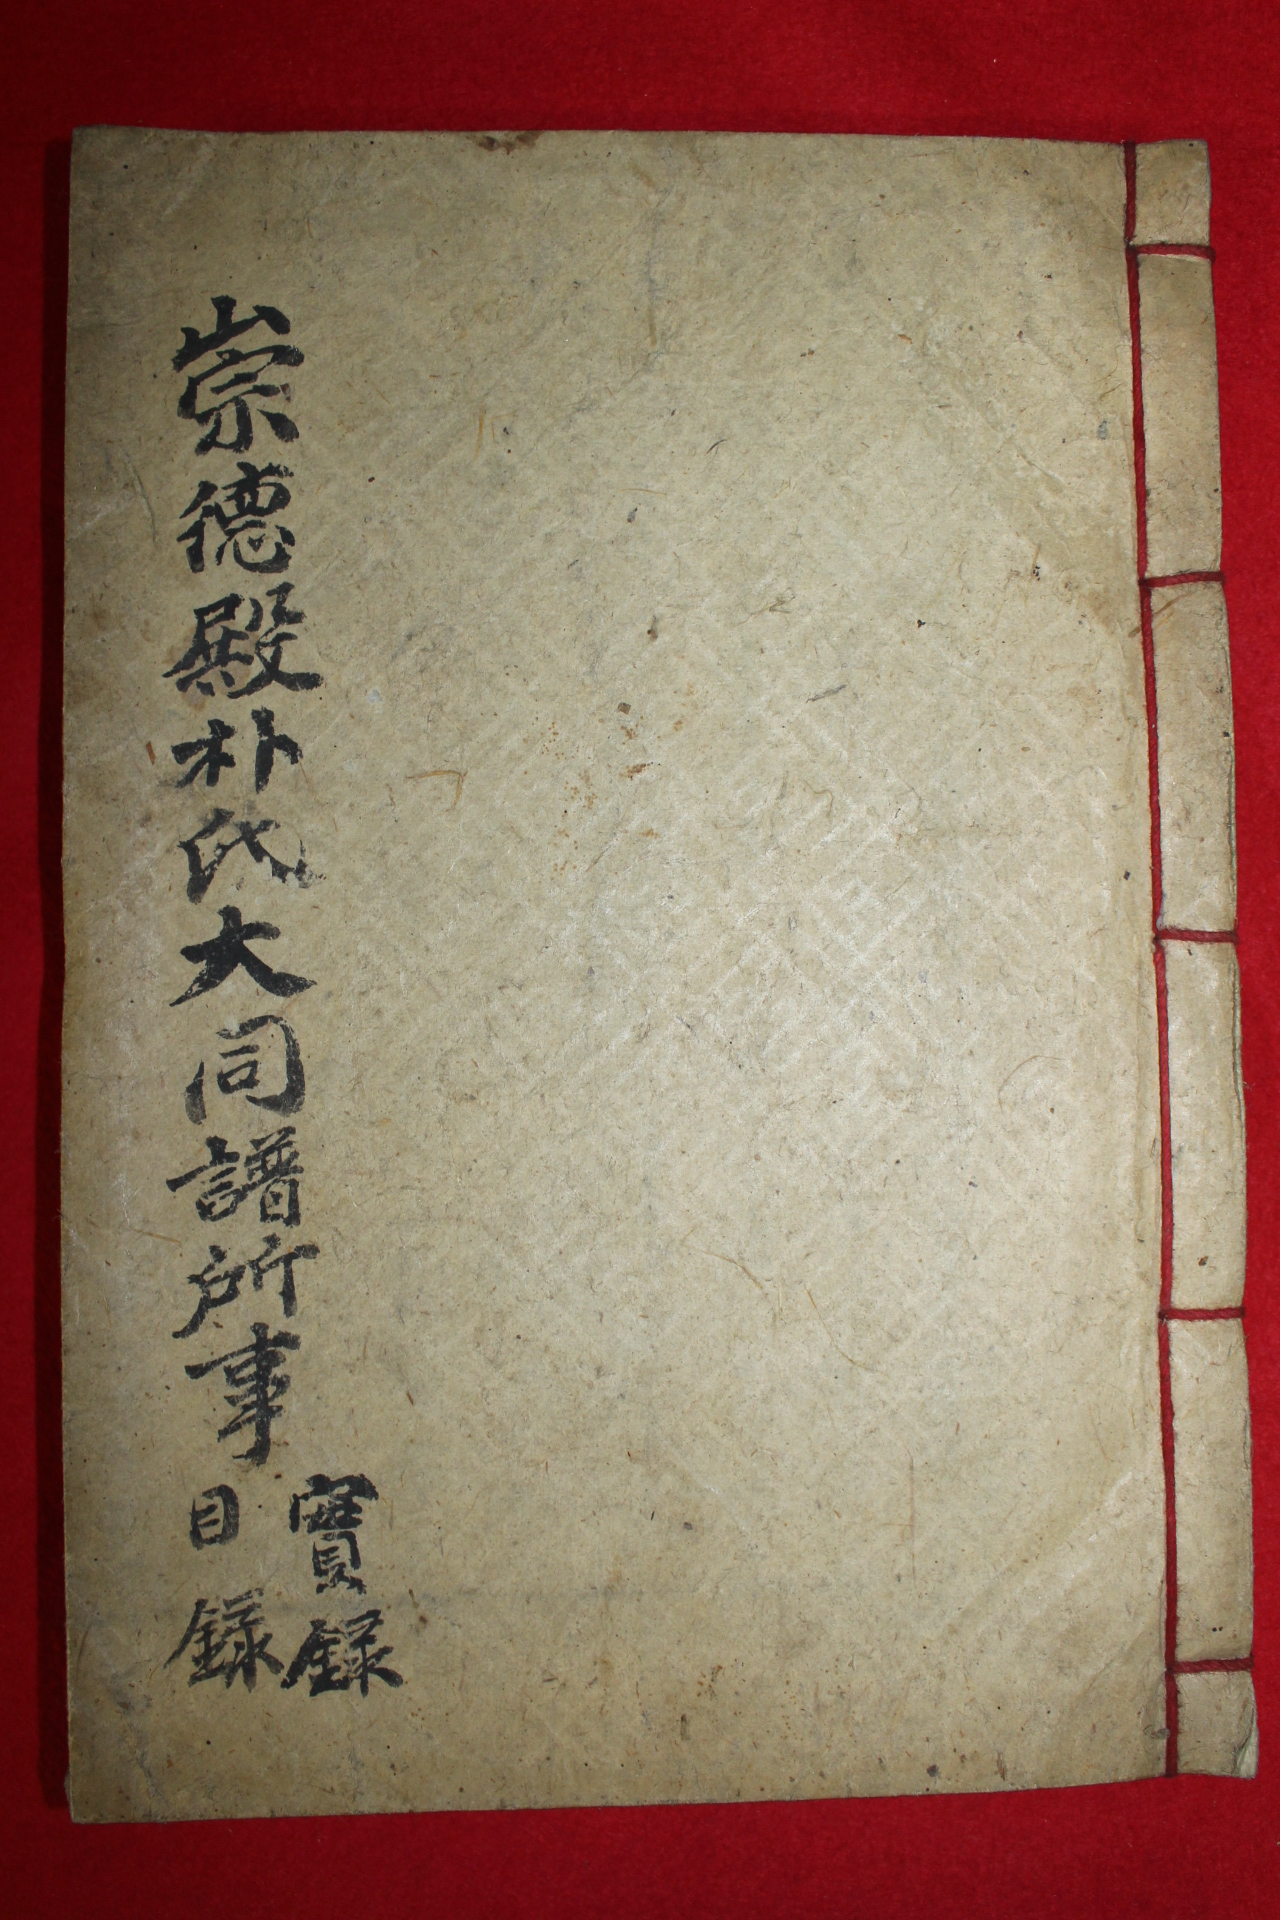 崇德殿朴氏大同譜所事
實錄
目錄